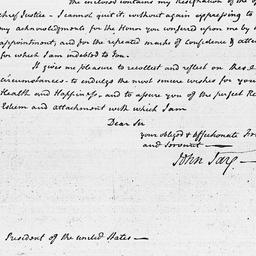 The enclosed contains my Resignation of the of
chief Justice – I cannot quit it, without again expressing to
my acknowledgments for the Honor you conferred upon me by
appointment, and for the repeated marks of confidence & atte
for which I am indebted to You.
It gives me pleasure to recollect and reflect on these
circumstances – to indulge the most sincere wishes for your
Health and Happiness – and to assure you of the perfect Re
Esteem and attachment with which I am
Dear Sir
your obliged & affectionate
and servant –
John Jay
President of the united States –